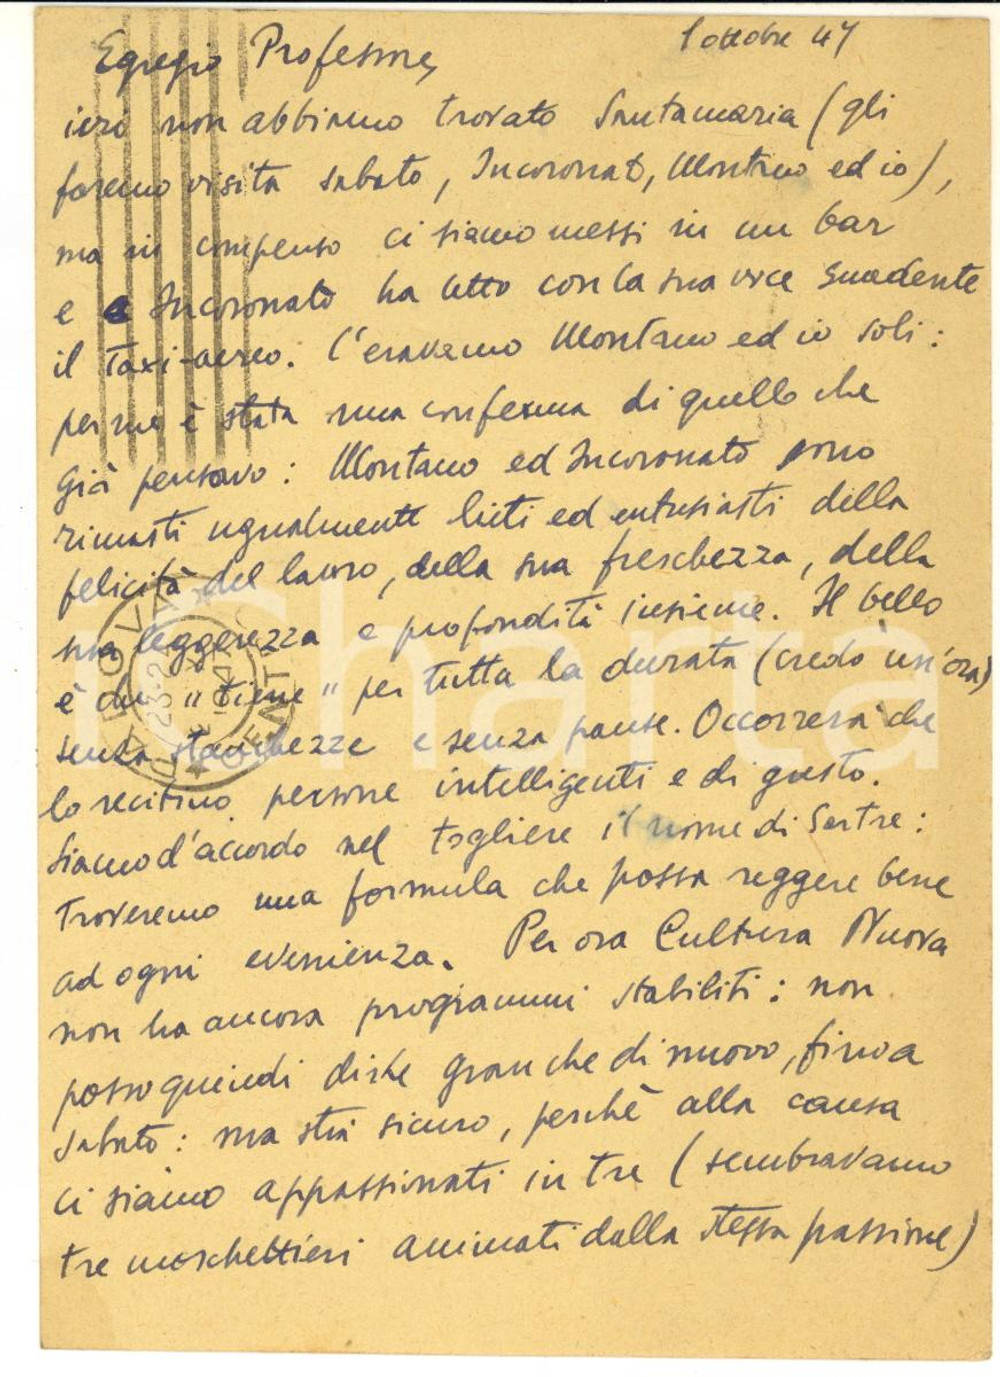 1 ottobre 47
Egregio Professore,
ieri non abbiamo trovato Santamaria (gli
faremo visita sabato, Incoronato, Montano ed io),
ma in compenso ci siamo messi in un bar
e Incoronato ha letto con la sua voce suadente
il Taxi-aereo. C'eravamo Montano ed io soli:
per me è stata una conferma di quello che
già pensavo: Montano ed Incoronato sono
rimasti ugualmente lieti ed entusiasti della
felicità del lavoro, della sua freschezza, della
sua leggerezza e profondità insieme. Il bello
è che "tiene" per tutta la durata (credo un'ora)
senza stanchezze e senza pause. Occorrerà che
lo recitino persone intelligenti e di gusto.
Siamo d'accordo nel togliere il nome di Sartre:
troveremo una formula che possa reggere bene
ad ogni evenienza. Per ora Cultura Nuova
non ha ancora programmi stabiliti: non
posso quindi dirLe gran che di nuovo, fino a
sabato: ma stia sicuro, perchè alla causa
ci siamo appassionati in tre (sembravamo
tre moschettieri animati dalla stessa passione)
Charta